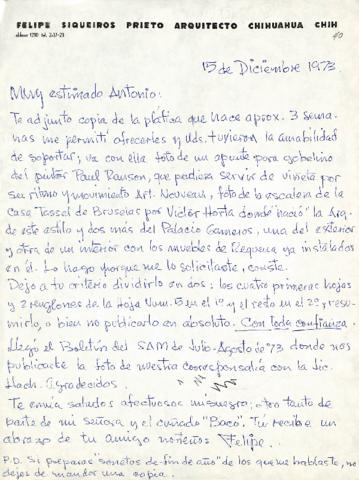 FELIPE SIQUEIROS PRIETO ARQUITECTO CHIHUAHUA CHIH
aldama 1210 tel. 2-17-25
40
15 de Diciembre 1973.
Muy estimado Antonio:
Te adjunto copia de la plática que hace aprox. 3 sema-
nas me permití ofrecerles y Uds. tuvieron la amabilidad
de soportar; va con ella foto de un apunte para gobelino
del pintor Paul Ranson, que pudiera servir de viñeta por
su ritmo y movimiento Art. Nouveau, foto de la escalera de la
Casa Tassel de Bruselas por Victor Horta donde nació la Arq.
de este estilo y dos más del Palacio Gameros, una del exterior
y otra de un interior con los muebles de Requena ya instalados
en él. Lo hago porque me lo solicitaste, conste.
Dejo a tu criterio dividirlo en dos: los cuatro primeras hojas
y 2 renglones de la Hoja Num. 5 en el 1º y el resto en el 2º; resu-
mirlo, o bien no publicarlo en absoluto. Con toda confianza.
Llegó el Boletín del SAM de Julio-Agosto de '73 donde nos
publicaste la foto de nuestra corresponsalía con la Lic.
Hach. Agradecidos.
Te envía saludos afectuosos mi suegra; otro tanto de
parte de mi señora y el cuñado "Paco". Tú recibe un
abrazo de tu amigo norteño: Felipe.
P.D. Si preparas "sonetos de fin de año" de los que me hablaste, no
dejes de mandar una copia.